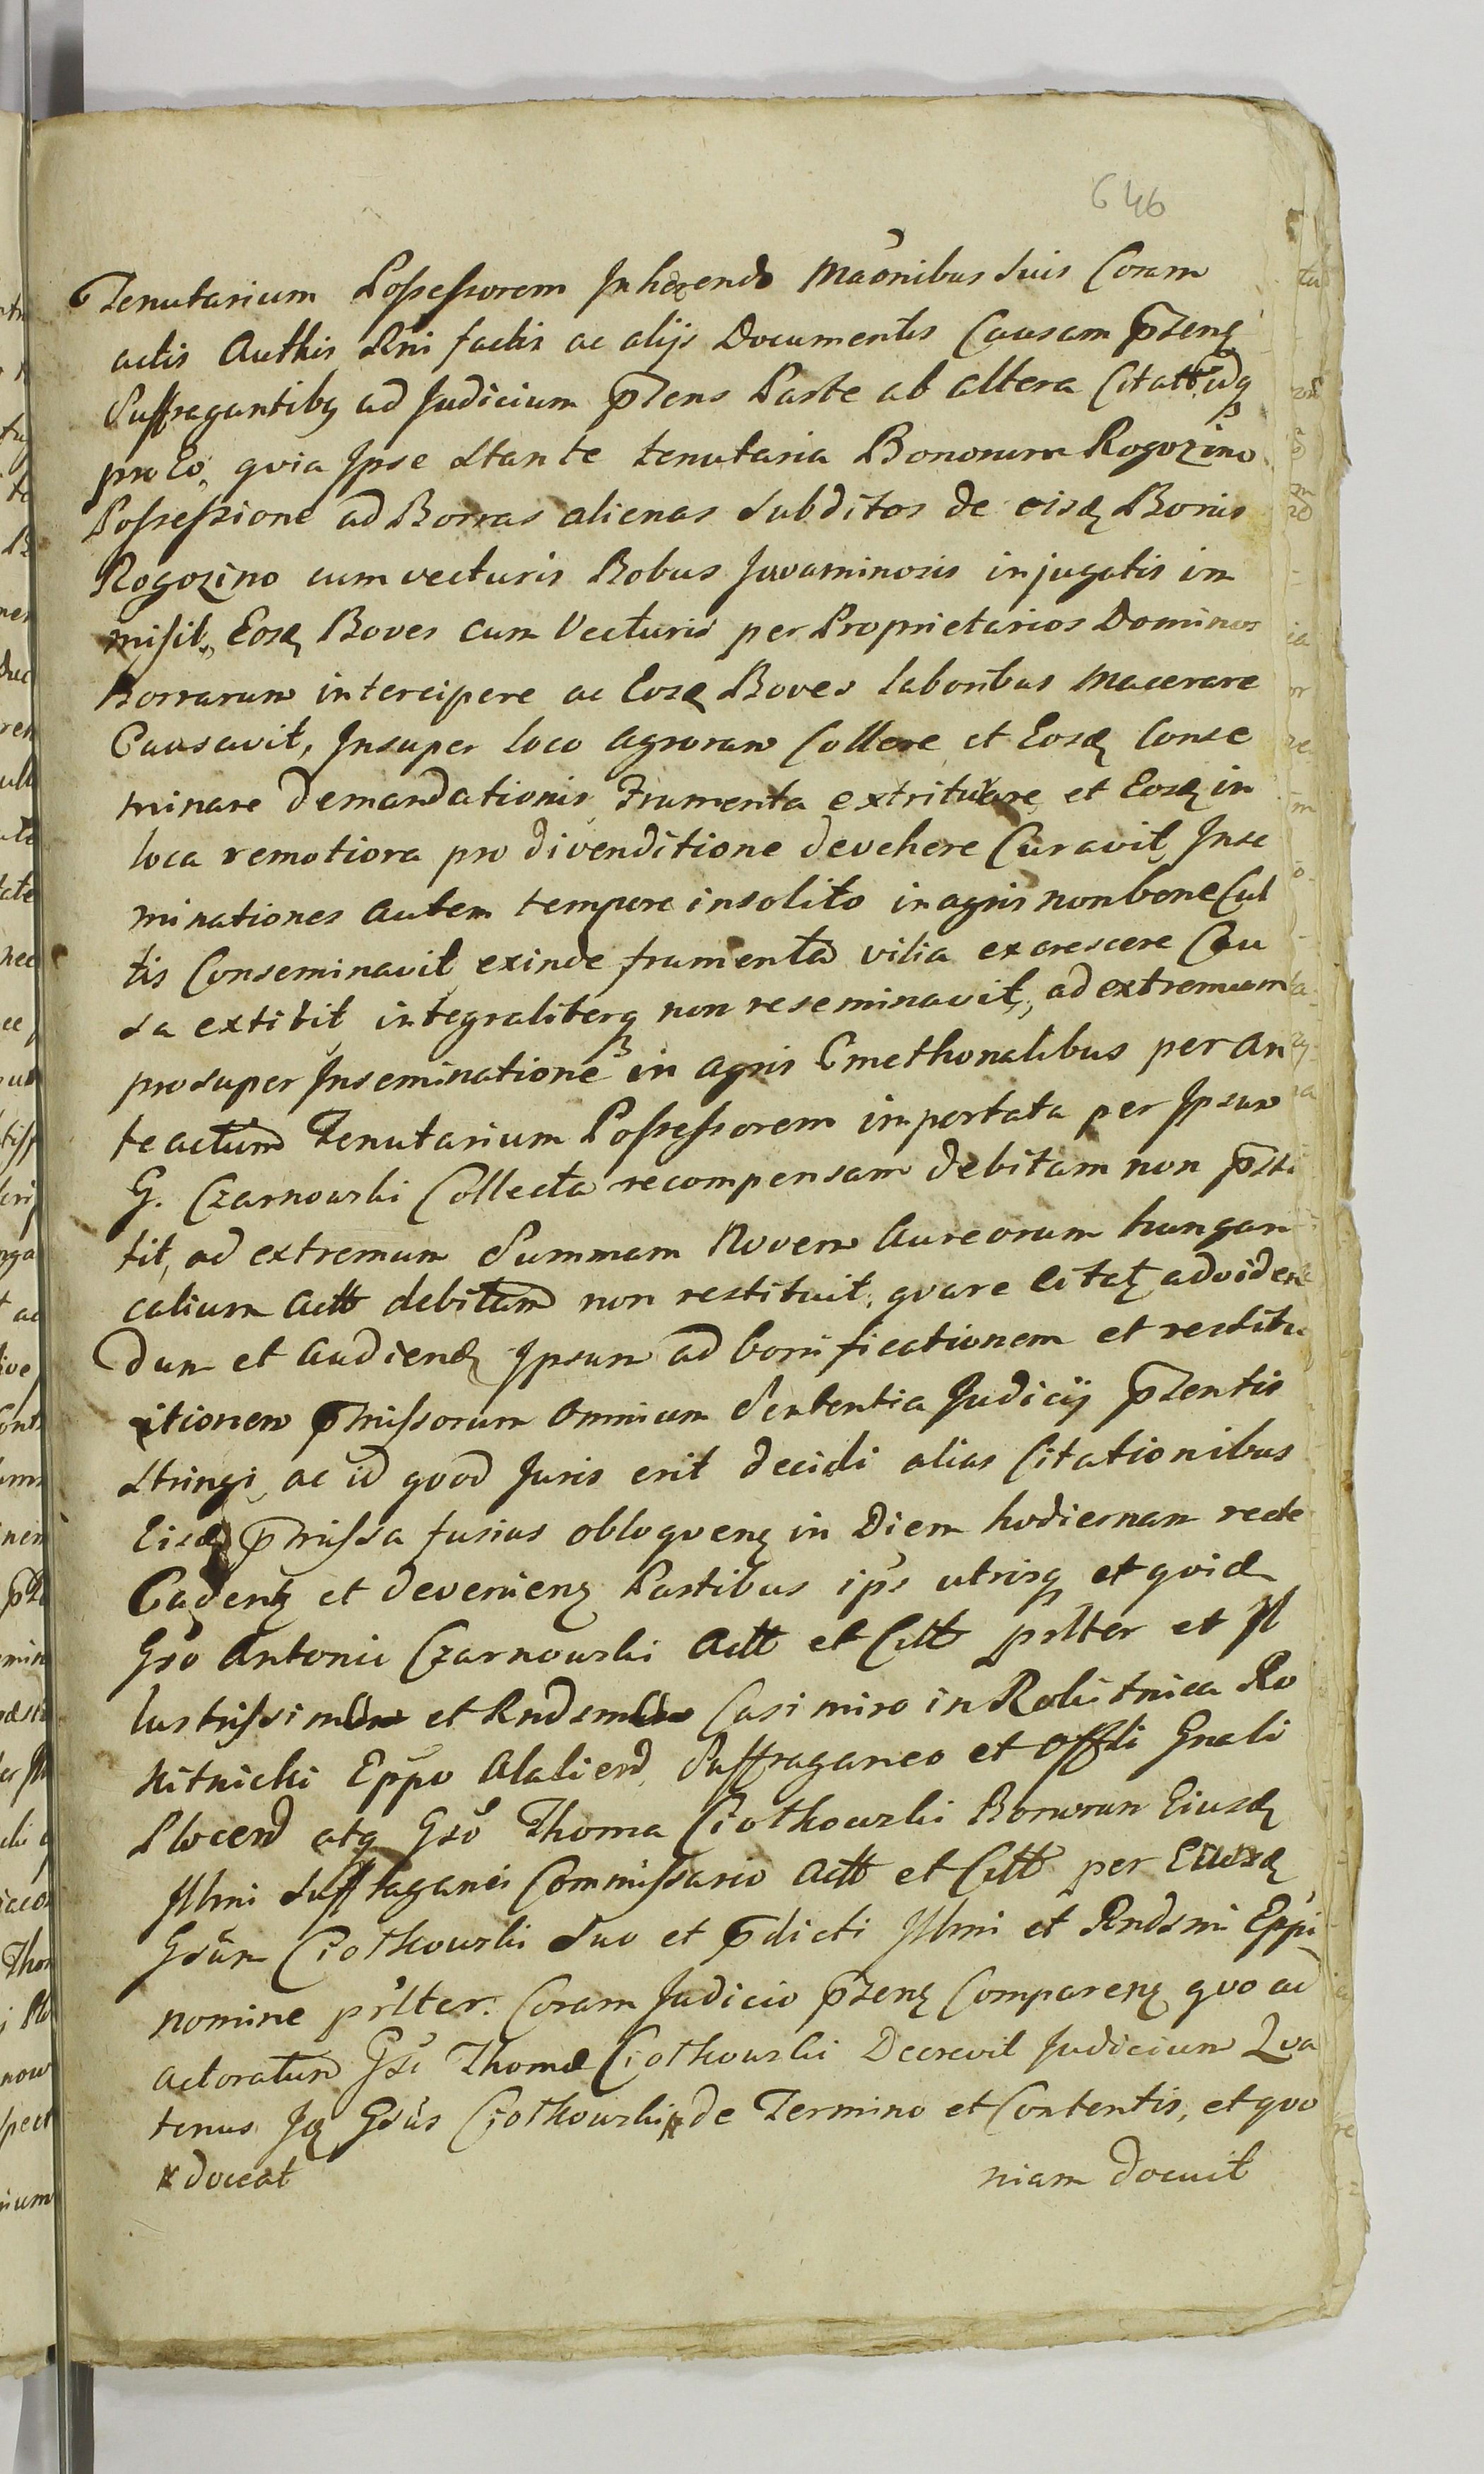 646
Tenutarium Possessorem Inhærendo Maõnibus suis Coram
actis Autthis Rni factis ac alijs Documentis Causam p̃zenꝫ
suffragantibꝫ ad Judicium p̃zens Parte ab altera Citatt. idqꝫ
pro Eo, qvia Ipse stante tenutaria Bonorum Rogozino
Possessione ad Borras alienas subditos de eisdꝫ Bonis
Rogozino cum vecturis Bobus Juvaminosis injugatis im
misit, Eosdꝫ Boves cum Vecturis per Proprietarios Dominos
Borrarum intercipere ac Eosdꝫ Boves laboribus macerare
Causavit, Insuper loco agrorum Collere et Eosdꝫ Conse
minare demandationis Frumenta extriturare et Eosdꝫ in
loca remotiora pro divenditione devehere Curavit, Inse
minationes autem tempore insolito in agris non bene Cul
tis Conseminavit, exinde frumenta vilia excrescere Cau
sa extitit, integraliterqꝫ non reseminavit, ad extremum
pro super Inseminatione in agris Cmethonalibus per an
teactum Tenutarium Possessorem importata per Ipsum
G. Czarnowski Collecta recompensam debitam non p̃sti
tit, ad extremum Summam Novem Aureorum hungari
calium Actt debitam non restituit, qvare citatꝫ ad viden
dum et audiendꝫ Ipsum ad bonificationem et restitu
itionem p̃missorum omnium Sententia Judicij p̃zentis
stringi, ac id qvod Juris erit decidi alias Citationibus
Eisdꝫ p̃missa fusius obloqvenꝫ in Diem hodiernam recte
Cadentꝫ et devenienꝫ Partibus ip̃s utrisqꝫ et qvidꝫ
Gso Antonio Czarnowski Actt et Citt p̃rlter et Il
lustrissimo et Rndsmo Casimiro in Rokitnica Ro
kitnicki Ep̃po Alalienꝫ Suffraganeo et Offli Gnali
Plocenꝫ atqꝫ Gso Thoma Ciotkowski Bonorum Eiusdꝫ
Illmi Suffraganei Commissario Actt et Citt per Eundꝫ
Gsum Ciotkowski suo et p̃dicti Illmi et Rndsmi Ep̃pi
nomine p̃rlter. Coram Judicio p̃zenꝫ Comparenꝫ qvo ad
actoratum Gsi Thomæ Ciotkowski Decrevit Judicium Qva
tenus Iꝫ Gsus Ciotkowski # de Termino et Contentis, et qvo
# doceat niam docuit